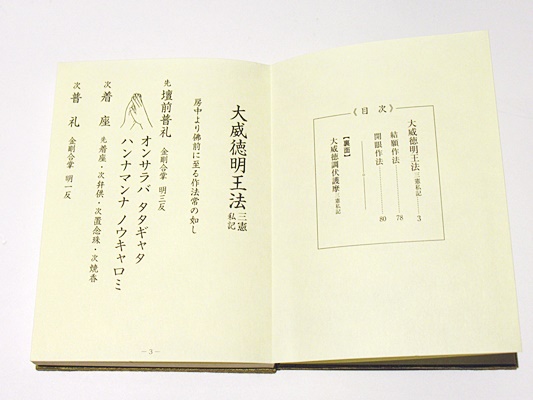 《目次》
大威徳明王法 三憲私記 3
結願作法 78
開眼作法 80
【裏面】
大威徳調伏護摩 三憲私記
大威徳明王法 三憲私記
房中より佛前に至る作法常の如し
先 壇前普礼 金剛合掌 明三反
オンサラバ タタギャタ
ハンナマンナ ノウキャロミ
次 着座 先着座・次弁供・次置念珠・次焼香
次 普礼 金剛合掌 明一反
―3―